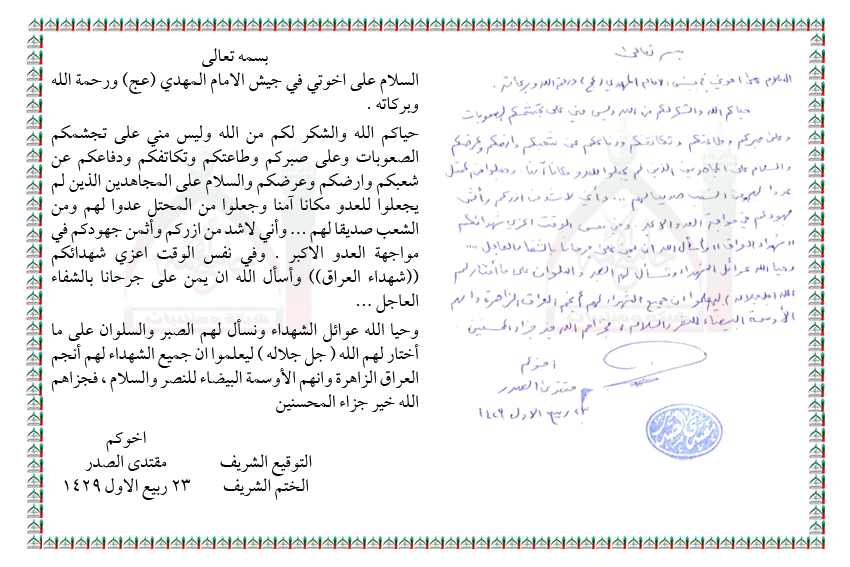 بسمه تعالى
السلام على اخوتي في جيش الامام المهدي (عج) ورحمة الله
وبركاته .
حياكم الله والشكر لكم من الله وليس مني على تجشمكم
الصعوبات وعلى صبركم وطاعتكم وتكاتفكم ودفاعكم عن
شعبكم وارضكم وعرضكم والسلام على المجاهدين الذين لم
يجعلوا للعدو مكانا آمنا وجعلوا من المحتل عدوا لهم ومن
الشعب صديقا لهم ... وأني لاشد من ازركم وأثمن جهودكم في
مواجهة العدو الاكبر . وفي نفس الوقت اعزي شهدائكم
((شهداء العراق)) وأسأل الله ان يمن على جرحانا بالشفاء
العاجل ...
وحيا الله عوائل الشهداء ونسأل لهم الصبر والسلوان على ما
أختار لهم الله ( جل جلاله ) ليعلموا ان جميع الشهداء لهم أنجم
العراق الزاهرة وانهم الأوسمة البيضاء للنصر والسلام ، فجزاهم
الله خير جزاء المحسنين
اخوكم
التوقيع الشريف مقتدى الصدر
الختم الشريف ٢٣ ربيع الاول ١٤٢٩
بسمه تعالى
السلام على اخوتي في جيش الامام المهدي (عج) ورحمة الله وبركاته .
حياكم الله والشكر لكم من الله وليس مني على تجشمكم الصعوبات
وعلى صبركم وطاعتكم وتكاتفكم ودفاعكم عن شعبكم وارضكم وعرضكم
والسلام على المجاهدين الذين لم يجعلوا للعدو مكانا آمنا وجعلوا من المحتل
عدوا لهم ومن الشعب صديقا لهم ... وأني لاشد من ازركم وأثمن
جهودكم في مواجهة العدو الاكبر . وفي نفس الوقت اعزي شهدائكم
((شهداء العراق)) وأسأل الله ان يمن على جرحانا بالشفاء العاجل ...
وحيا الله عوائل الشهداء ونسأل لهم الصبر والسلوان على ما أختار لهم
الله (جل جلاله) ليعلموا ان جميع الشهداء لهم أنجم العراق الزاهرة وانهم
الأوسمة البيضاء للنصر والسلام ، فجزاهم الله خير جزاء المحسنين .
اخوكم
مقتدى الصدر
٢٣ ربيع الاول ١٤٢٩